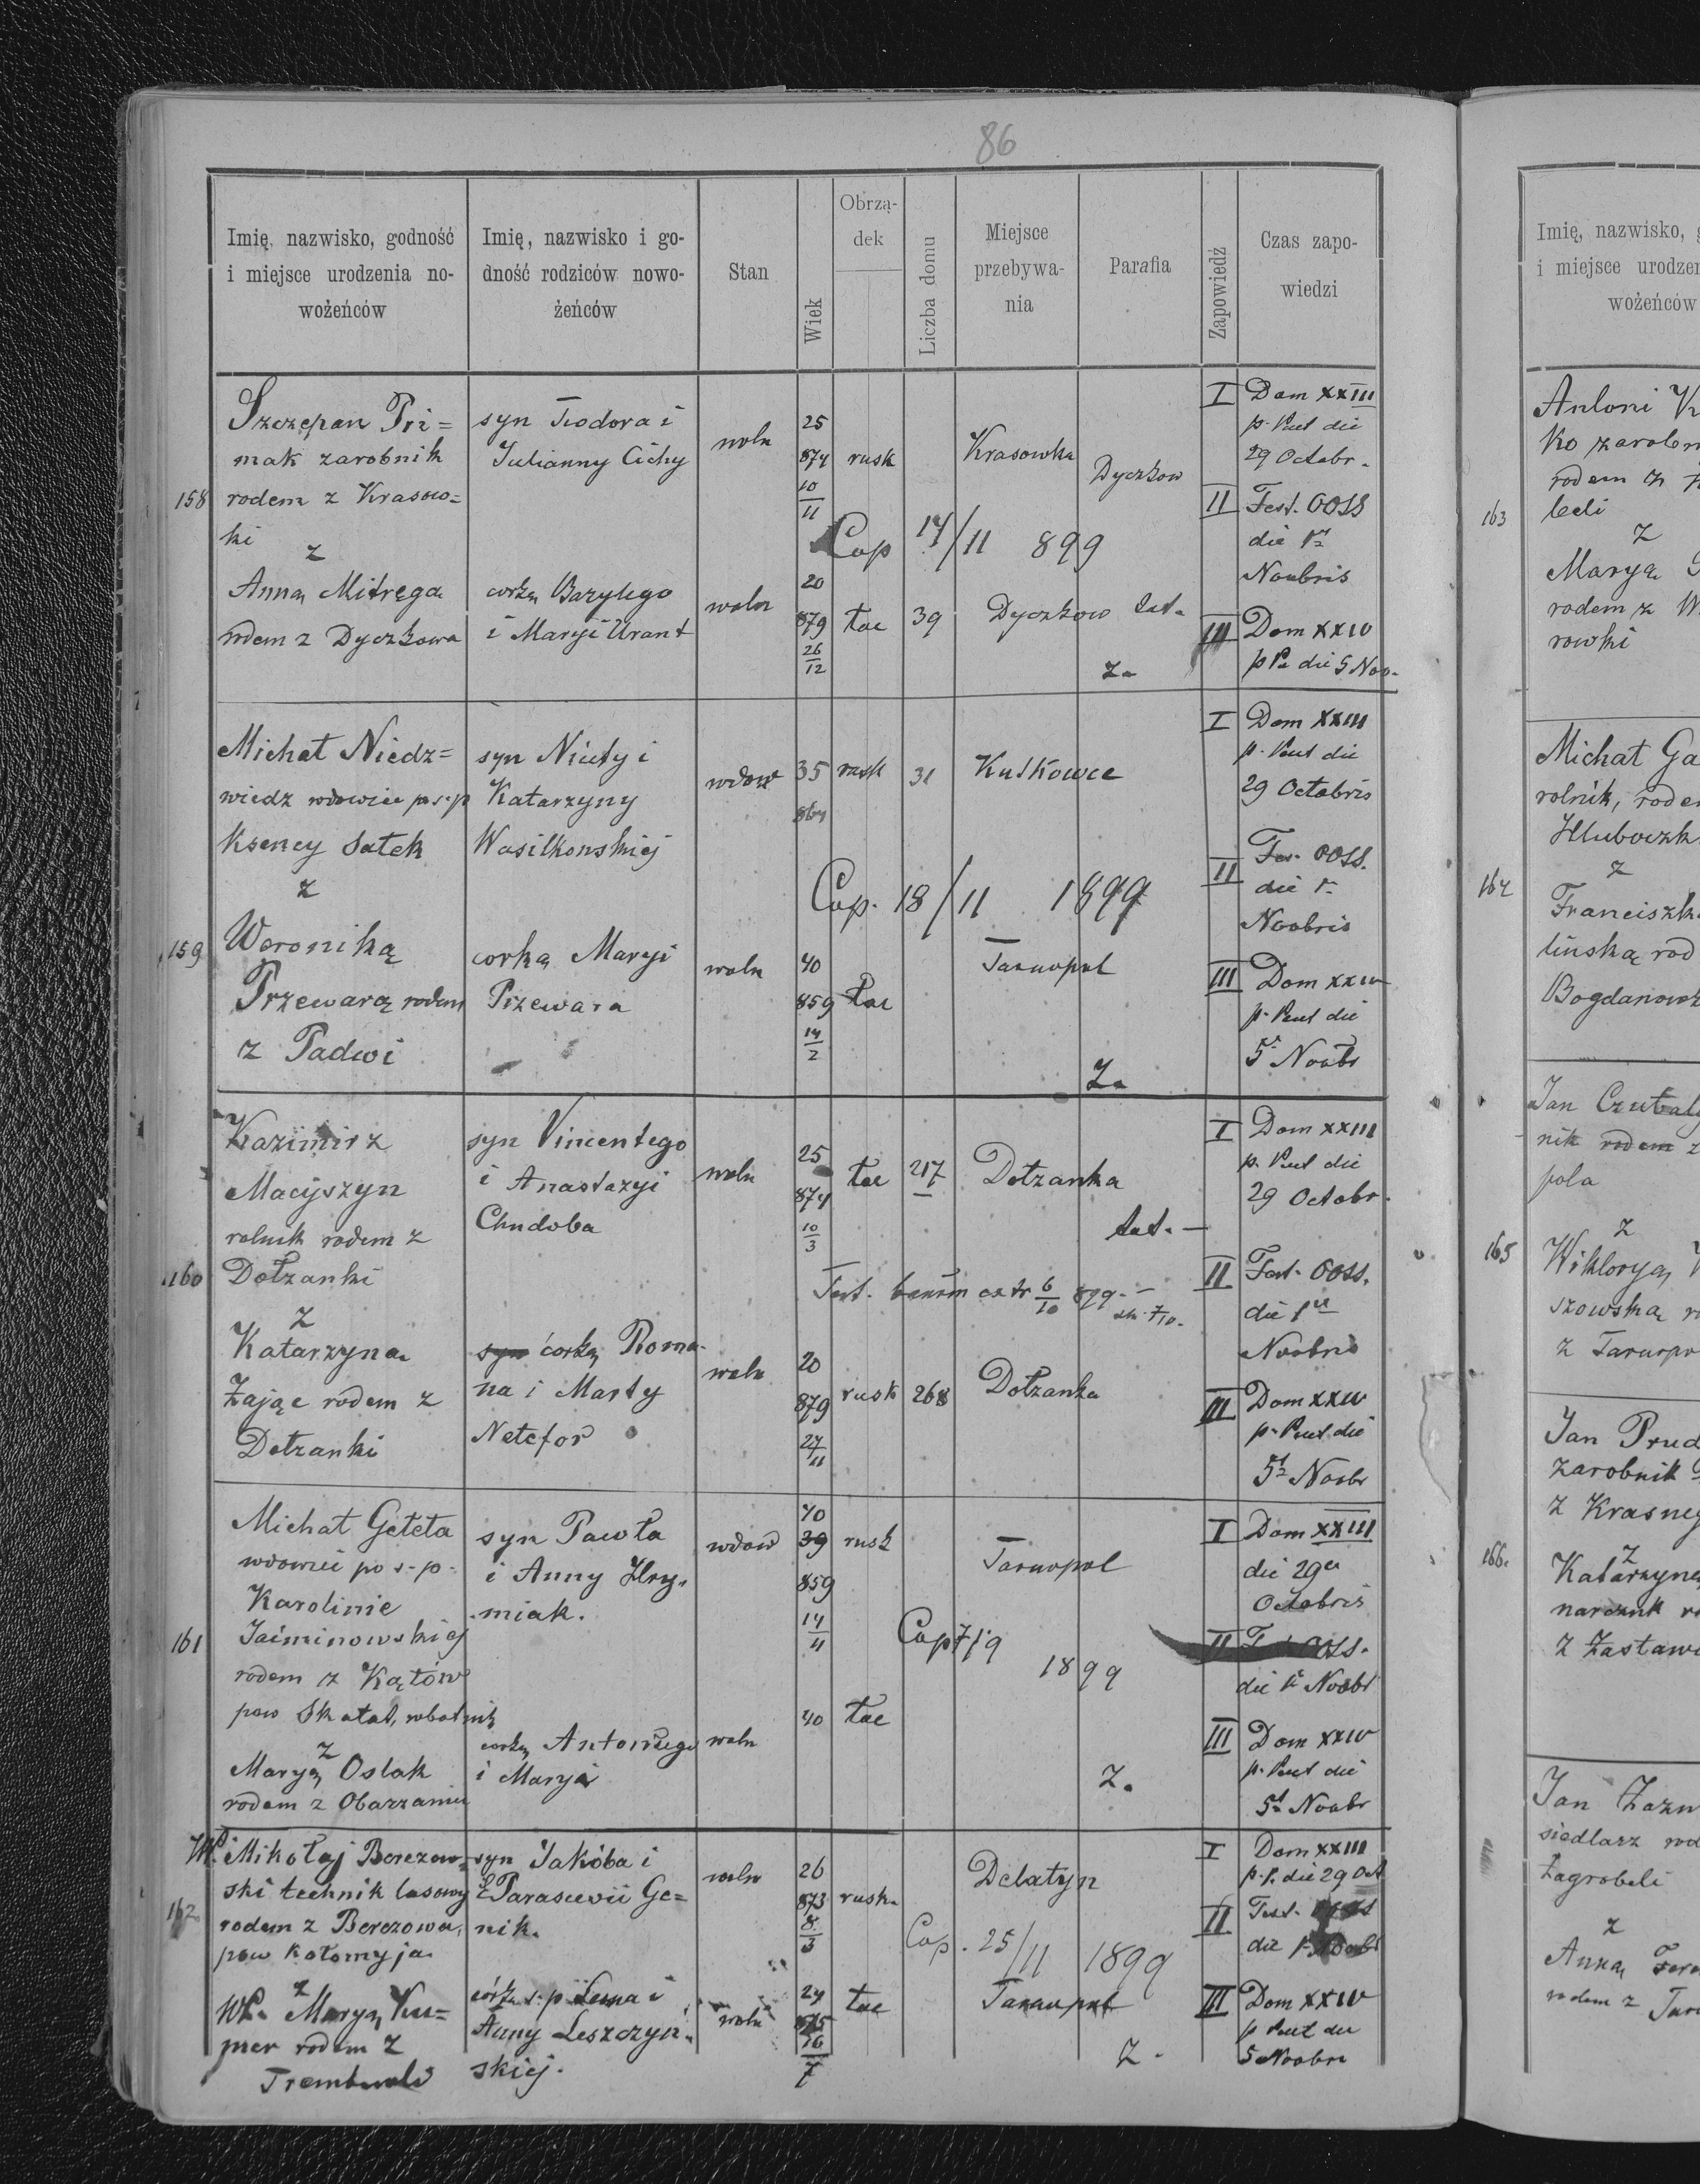 86
Imię, nazwisko, godność i miejsce urodzenia no-wożeńców
Imię, nazwisko i go-dność rodziców nowo-żeńców
Stan
Wiek
Obrzą-dek
Liczba domu
Miejsce przebywa-nia
Parafia
Zapowiedź
Czas zapo-wiedzi
158
Szczepan Pri=
mak zarobnik
rodem z Krasow=
ki
z
Anną Mitręga
rodem z Dyczkowa
syn Teodora i
Julianny Cichy
corką Bazylego
i Maryi Urant
woln
woln
25
874
10/11
20
879
26/12
rusk
łac
39
Krasowka
Dyczkow
Cop 14/11 899
Dyczkow łat.
Z.
I Dom XXIII
p. Pent die
29 Octobr.
II Fest. OOSS
die 1a
Novbris
III Dom XXIV
p Pe die 5 Nov.
159
Michał Niedz=
wiedz wdowiec po s.p
Ksency Sałek
z
Weroniką
Przewarą rodem
z Padwi
syn Nicity i
Katarzyny
Wasilkonskiej
corką Maryi
Przewara
wdow
woln
35
864
40
859
14/2
rusk
łac
31
Kutkowce
Cop. 18/11 1899
Tarnopol
Z.
I Dom XXIII
p. Pent die
29 Octobris
II Fes. OOSS.
die 1
Novbris
III Dom XXIV
p. Pent die
5 Novbr
160
Kazimirz
Macijszyn
rolnik rodem z
Dołzanki
z
Katarzyna
Zając rodem z
Dołzanki
syn Vincentego
i Anastazyi
Chudoba
syn córką Roma-
na i Marty
Netefor
woln
woln
25
874
10/3
20
879
27/11
łac
rusk
217
268
Dołzanka
łat.
Test. bannm extr 6/10 899.
Dołzanka
I Dom XXIII
p. Pent die
29 Octobr.
II Fest. OOSS.
die 1
Novbris
III Dom XXIV
p. Pent die
5 Novbr
161
Michał Geleta
wdowiec po s.p.
Karolinie
Jaiminowskiej
rodem z Kątów
pow Skałat, robotnik
z
Maryą Oslak
rodem z Obarzaniec
syn Pawła
i Anny Hry-
miak.
corką Antoniego
i Maryi
wdow
woln
40
39
859
14/11
40
rusk
łac
Tarnopol
1899
Z.
I Dom XXIII
die 29a
Octobris
II OOSS.
die 1 Novbr
III Dom XXIV
p. Pent die
5 Novbr
162
WP. Mikołaj Berezow-
ski technik lasowy
rodem z Berezowa,
pow Kołomyja
z
WP. Maryą Ku=
mer rodem z
syn Jakóba i
Parascevii Ge=
nik.
córką s.p. i
Anny Leszczyn-
skiej.
woln
woln
26
873
8/3
24
875
16/7
rusk.
łac
Delatyn
Cop. 25/11 1899
Tarnopol
Z.
I Dom XXIII
p. P. die 29 Oct
II Fest.
die 1 Novbr
III Dom XXIV
p Pent die
5 Novbri
Imię, nazwisko,
i miejsce urodzen
wożeńców
163
Antoni
rodem z
z
Maryą
rodem z
rowki
164
Michał Ga
rolnik, rode
Hluboczk
z
Franciszk
lińską rod
Bogdanowk
165
Jan Czubaly
nik rodem z
pola
z
Wiktoryą
szowską
z Tarnopo
166.
Jan Prud
zarobnik
z Krasneg
z
Katarzyną
z Zastawi
Jan
siedlarz rod
Zagrobeli
z
Anną
rodem z